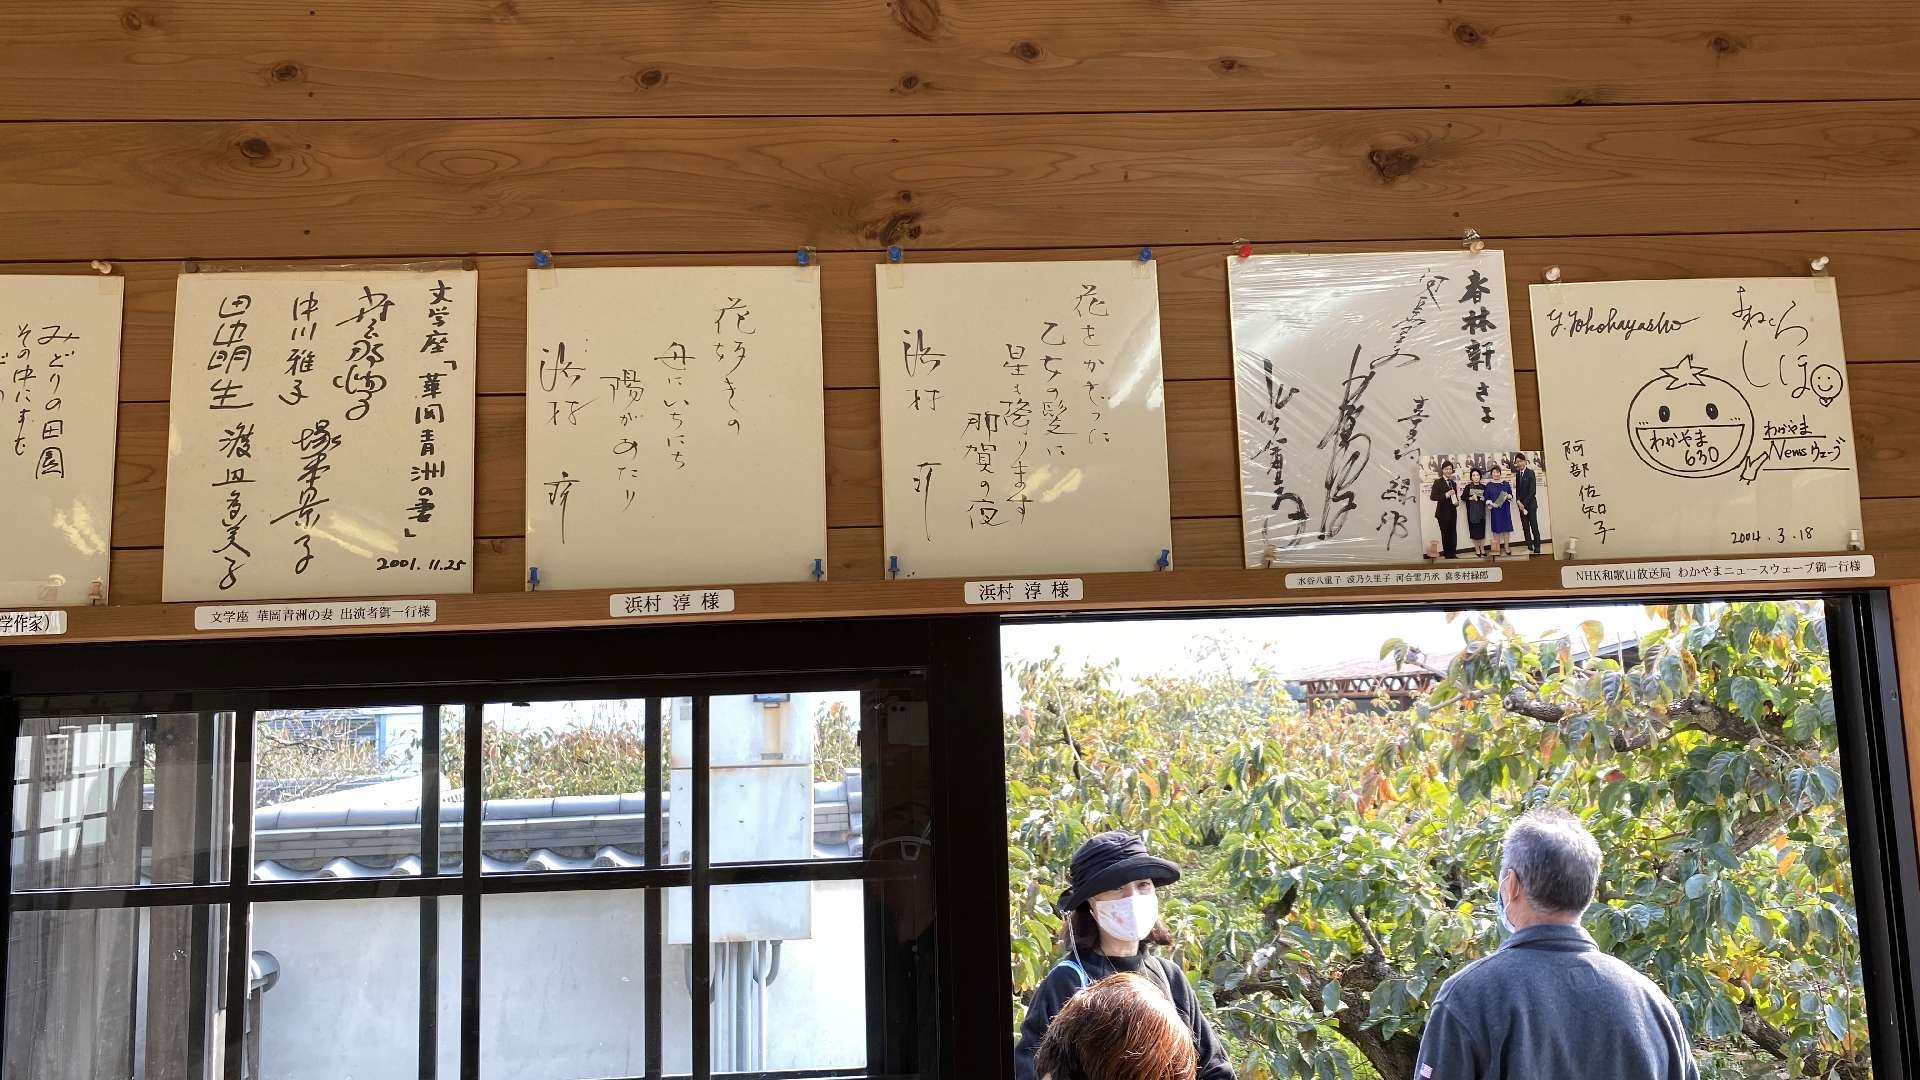 みどりの田園
その中にすむ
学作家）
文学座「華岡青洲の妻」
中川雅子
塚本景子
田中明生
渡辺真美子
2001.11.25
文学座 華岡青洲の妻 出演者御一行様
花好きの
母にいちにち
陽があたり
浜村 淳
浜村 淳 様
花をかざった
乙女の髪に
星も降ります
那賀の夜
浜村 淳
浜村 淳 様
春林軒さま
喜多村緑郎
水谷八重子 波乃久里子 河合雪乃丞 喜多村緑郎
y.Yokohayashi
わかやま
630
わかやま
Newsウェーブ
阿部佐知子
2004.3.18
NHK和歌山放送局 わかやまニュースウェーブ御一行様